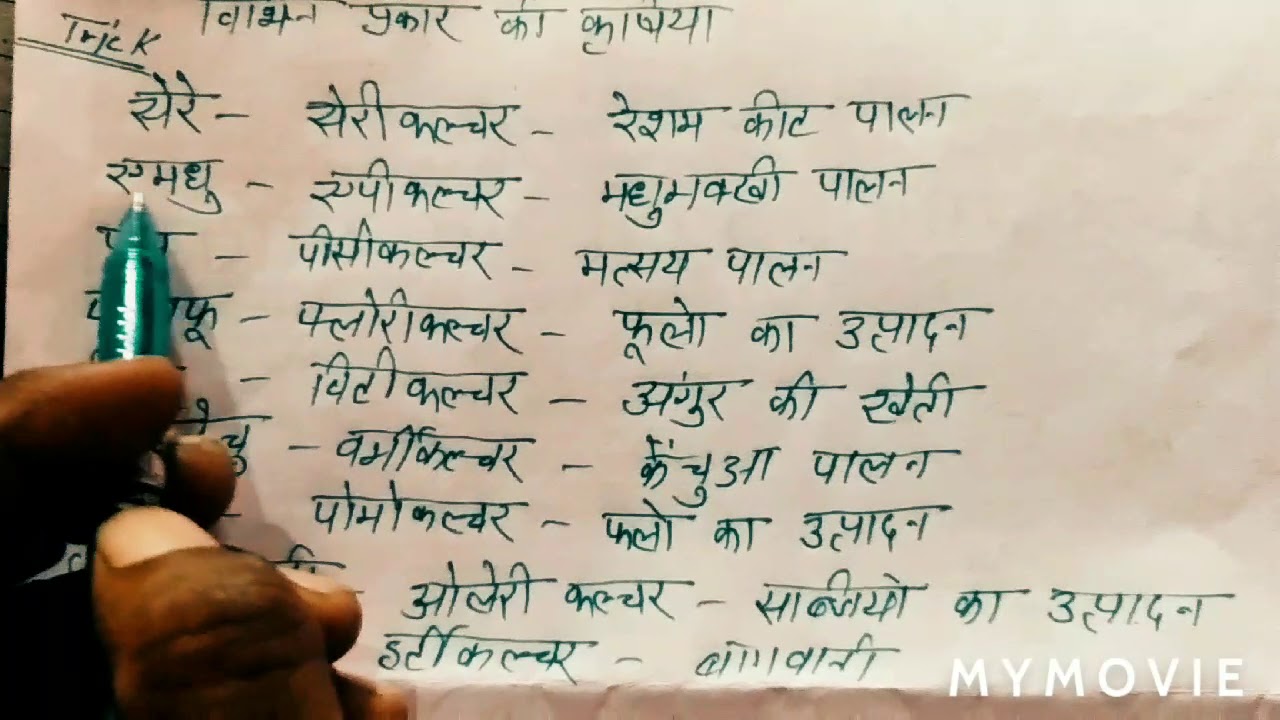 विभिन प्रकार की कृषिया
Trick
सेरे - सेरीकल्चर - रेशम कीट पालन
एमधु - एपीकल्चर - मधुमक्खी पालन
- पीसीकल्चर - मत्सय पालन
- फ्लोरीकल्चर - फूलो का उत्पादन
- विटीकल्चर - अंगुर की खेती
- वर्मीकल्चर - केंचुआ पालन
- पोमोकल्चर - फलो का उत्पादन
ओलेरी कल्चर - सब्जियो का उत्पादन
हर्टीकल्चर - बागवानी
MYMOVIE